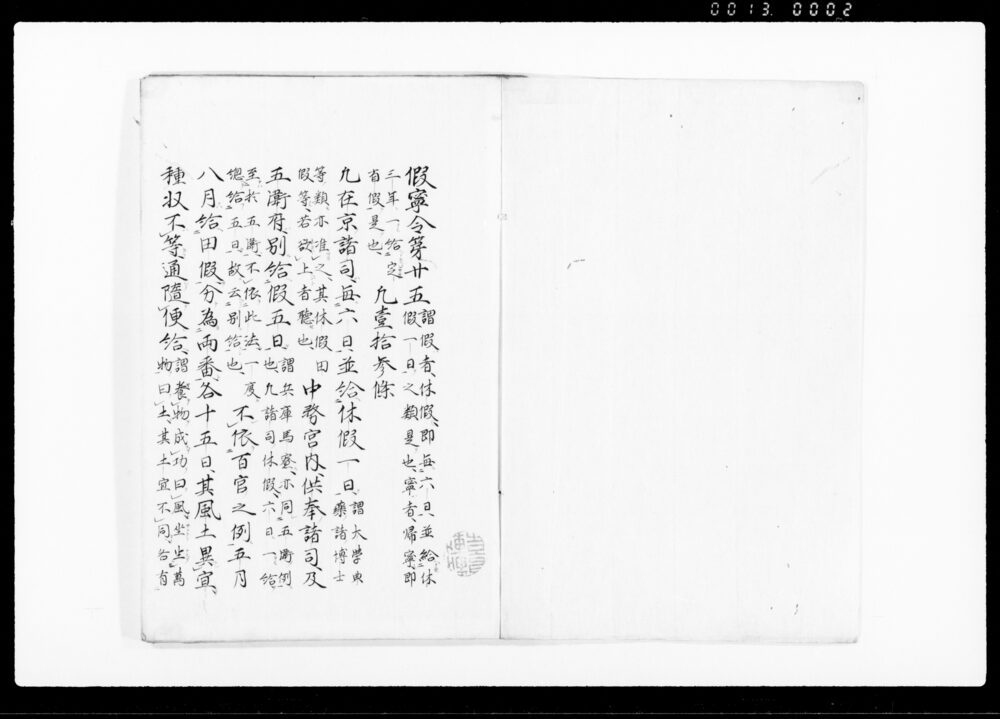 0013 0002
假寧令第廿五 謂假者休假即毎六日並給休
假一日之類是也寧者帰寧即
三年一給定
省假是也 凡壹拾参條
凡在京諸司毎六日並給休假一日 謂大学典
藥諸博士
等類亦准之其休假田
假等若欲上者聴也 中務宮内供奉諸司及
五衛府別給假五日 謂兵庫馬寮亦同五衛例
也凡諸司休假六日一給
至於五衛不依此法一度
惣給五日故云別給也 不依百官之例五月
八月給田假分為両番各十五日其風土異宜
種収不等通隨便給 謂養物成功曰風坐生萬
物曰土其土宜不同各有